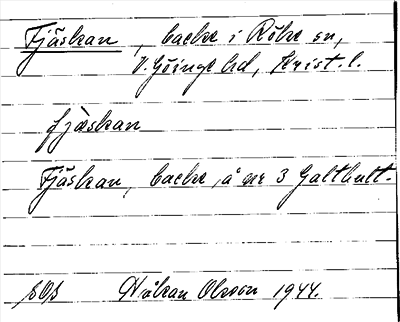 Fjäskan, backe i Röke sn,
V. Göinge hd, Krist. l.
fjäskan
Fjäskan, backe, å nr 3 Galthult.
Håkan Olsson 1944.